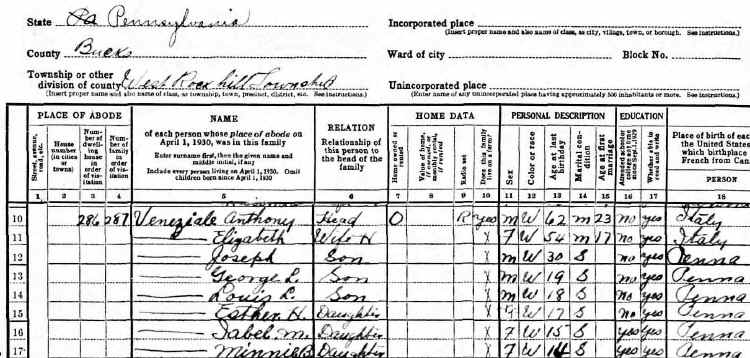 State Pa Pennsylvania Incorporated place
(Insert proper name and also name of class, as city, village, town, or borough. See instructions.)
County Bucks Ward of city Block No.
Township or other
division of county West Rock hill Township Unincorporated place
(Insert proper name and also name of class, as township, town, precinct, district, etc. See instructions.) (Enter name of any unincorporated place having approximately 500 inhabitants or more. See instructions.)
PLACE OF ABODE NAME RELATION HOME DATA PERSONAL DESCRIPTION EDUCATION
of each person whose place of abode on April 1, 1930, was in this family
Enter surname first, then the given name and middle initial, if any
Include every person living on April 1, 1930. Omit children born since April 1, 1930
Relationship of this person to the head of the family
Street, avenue, road, etc.
House number (in cities or towns)
Number of dwelling house in order of visitation
Number of family in order of visitation
Home owned or rented
Radio set
Does this family live on a farm?
Sex
Color or race
Age at last birthday
Marital condition
Age at first marriage
Whether able to read and write
Place of birth of eac
the United States
which birthplace
French from Can
PERSON
1 2 3 4 5 6 7 8 9 10 11 12 13 14 15 16 17 18
10 286 287 Veneziale Anthony Head O R yes M W 62 M 23 no yes Italy
11 — Elizabeth Wife H X F W 54 M 17 no yes Italy
12 — Joseph Son X M W 30 S no yes Penna
13 — George L. Son X M W 19 S no yes Penna
14 — Louis L. Son X M W 18 S no yes Penna
15 — Esther H. Daughter X W 17 S no yes Penna
16 — Isabel M. Daughter X F W 15 S yes yes Penna
17 — Minnie B Daughter X F W 14 S yes yes Penna